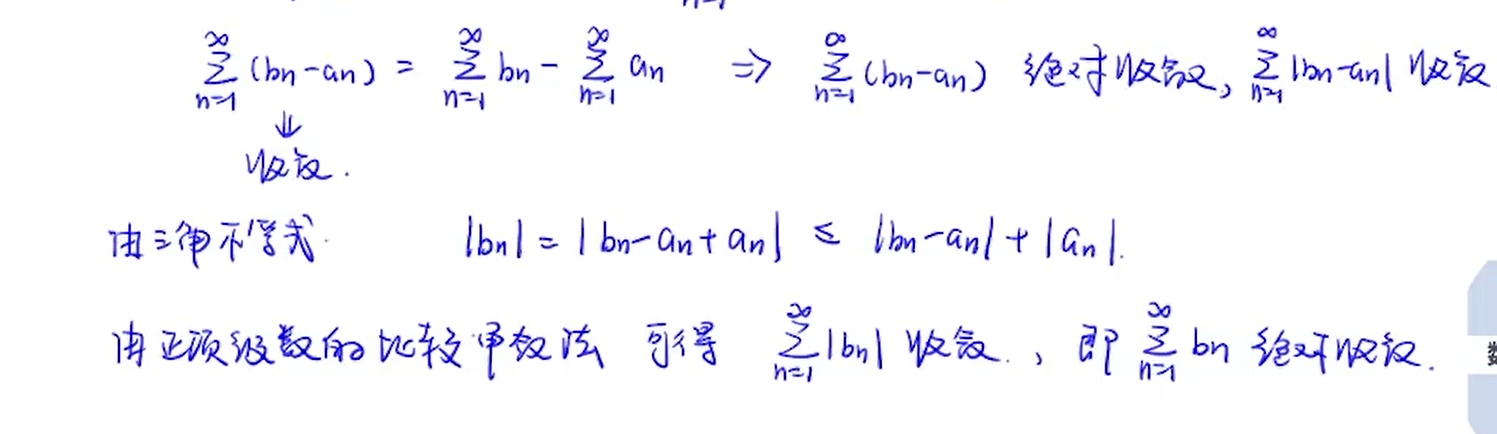 ∑_{n=1}^{∞} (bn-an) = ∑_{n=1}^{∞} bn - ∑_{n=1}^{∞} an ⇒ ∑_{n=1}^{∞} (bn-an) 绝对收敛, ∑_{n=1}^{∞} |bn-an| 收敛
⇓
收敛.
由三角不等式. |bn| = |bn-an+an| ≤ |bn-an| + |an|.
由正项级数的比较审敛法 可得 ∑_{n=1}^{∞} |bn| 收敛., 即 ∑_{n=1}^{∞} bn 绝对收敛.